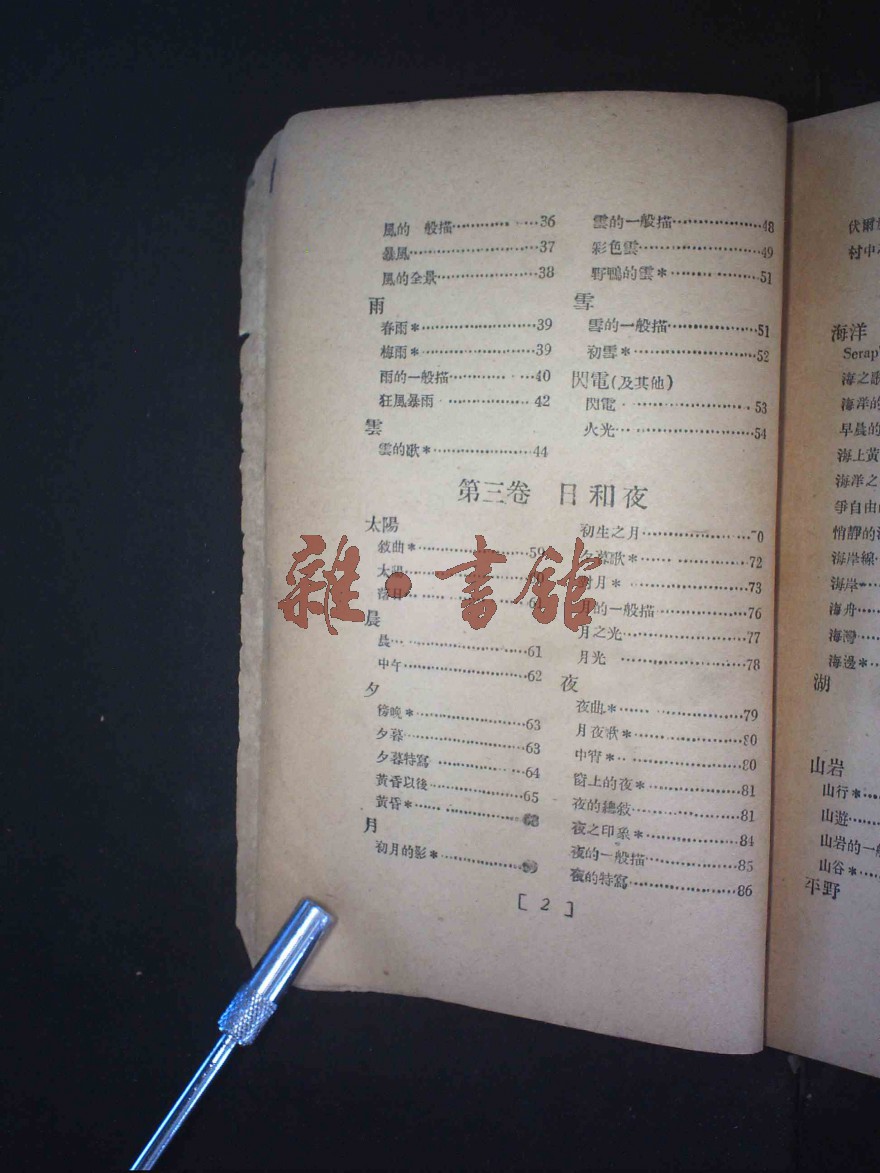 風的 般描………… …36
暴風………………37
風的全景……………38
雨
春雨*………………39
梅雨*………………39
雨的一般描……… …40
狂風暴雨 …………42
雲
雲的歌*……………44
雲的一般描……………48
彩色雲………………49
野鴨的雲*……………51
雪
雪的一般描……………51
初雪*………………52
閃電(及其他)
閃電 ………………53
火光… ……………54
第三卷 日和夜
太陽
敍曲*………………59
太陽
落日
晨
晨… ………………61
中午………………62
夕
傍晚*………………63
夕暮………………63
夕暮特寫 …………64
黃昏以後……………65
黃昏*…… …………
月
初月的影*……………
初生之月……………70
夕暮歌*……………72
對月*………………73
月的一般描……………76
月之光………………77
月光 ………………78
夜
夜曲*………………79
月夜歌*……………80
中宵*………………80
窗上的夜*……………81
夜的總敘……………81
夜之印象*……………84
夜的一般描……………85
夜的特寫……………86
[ 2 ]
雜·書館
伏爾
村中
海洋
Serap
海之歌
海洋的
早晨的
海上黃
海洋之
爭自由
悄靜的
海岸線
海岸
海舟
海灣
海邊*
湖
山岩
山行*
山遊
山岩的一般
山谷*
平野